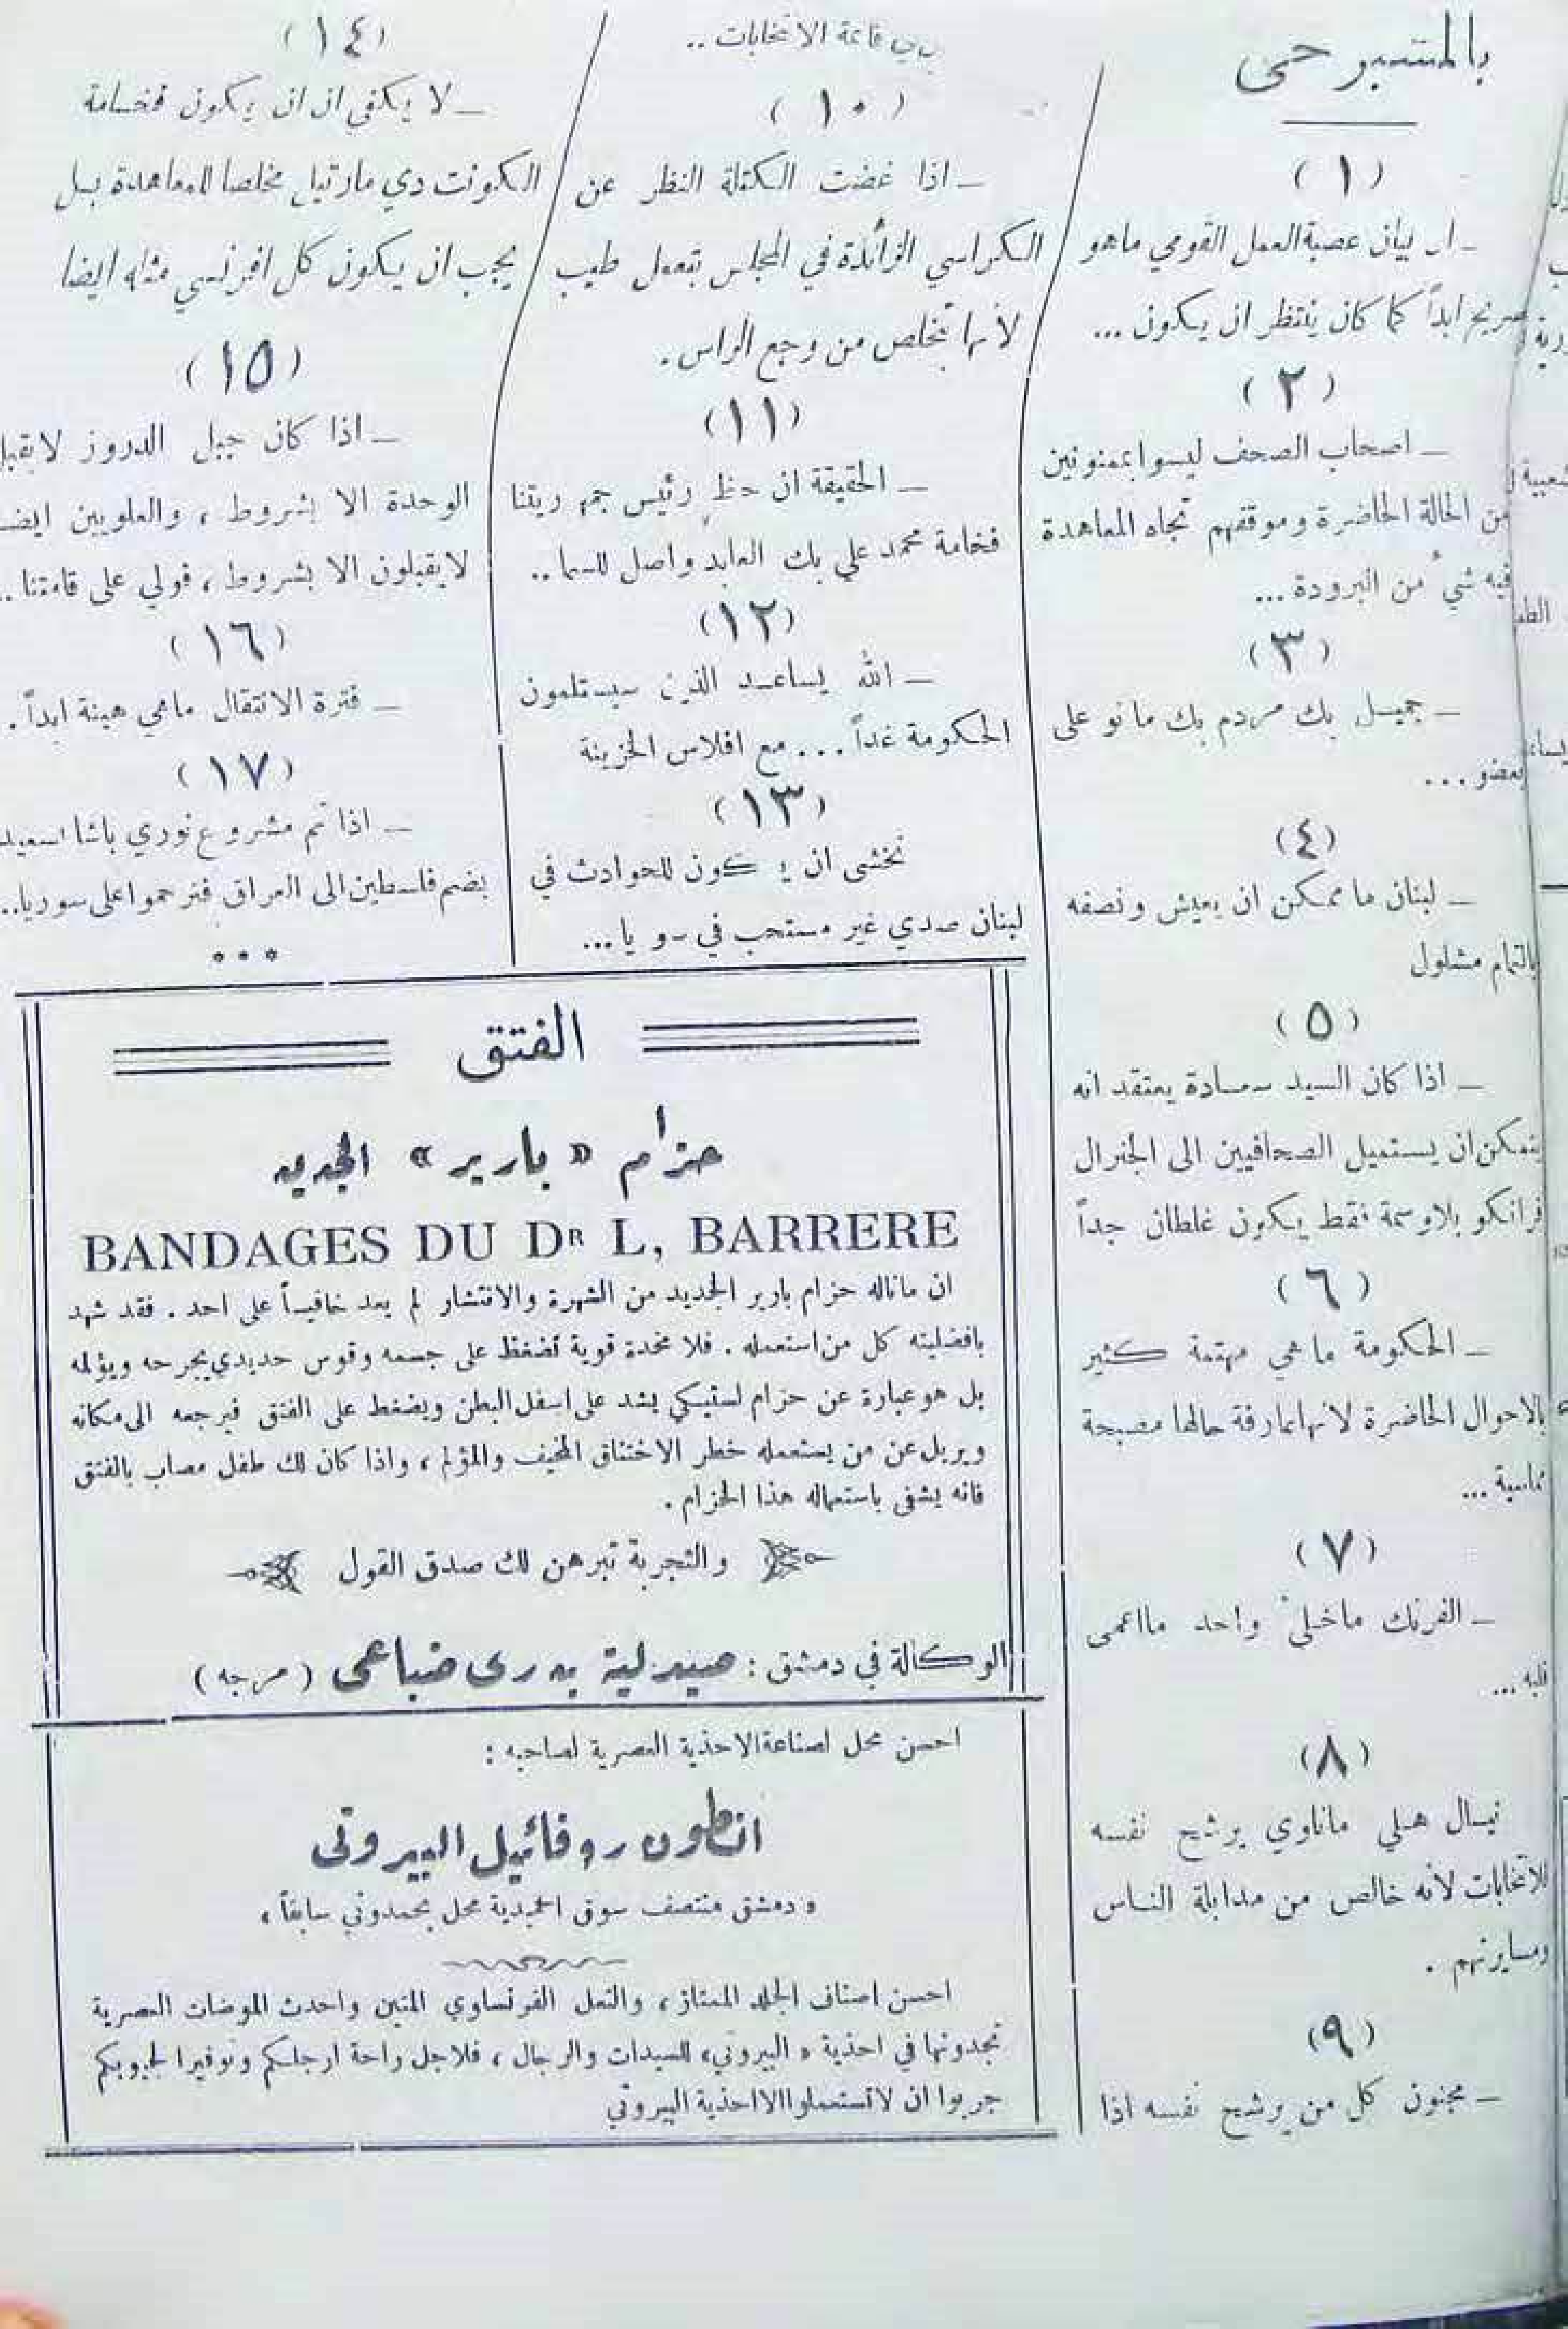 بالمشبرحى
(١)
ـ ان بيان عصبة العمل القومي ماهو
صريح ابداً كما كان ينتظر ان يكون ...
(٢)
ـ اصحاب الصحف ليسوا بممنونين
من الحالة الحاضرة وموقفهم تجاه المعاهدة
فيه شيء من البرودة ...
(٣)
ـ جميل بك مردم بك مانو على
بعضو ...
(٤)
ـ لبنان ما ممكن ان يعيش ونصفه
بالتمام مشلول
(٥)
ـ اذا كان السيد سعادة يعتقد انه
يتمكن ان يستميل الصحافيين الى الجنرال
فرانكو بالاوسمة فقط يكون غلطان جداً
(٦)
ـ الحكومة ماهي مهتمة كثير
بالاحوال الحاضرة لانها عارفة حالها مصبحة
ماسية ...
(٧)
ـ الفرنك ماخلى واحد مااعمى
قلبه ...
(٨)
نيال هللي ماناوي يرشح نفسه
للانتخابات لأنه خالص من مدابلة الناس
ومسايرتهم .
(٩)
ـ مجنون كل من يرشح نفسه اذا
قائمة الانتخابات ..
(١٠)
ـ اذا غضت الكتلة النظر عن
الكراسي الزائدة في المجلس بتعمل طيب
لأنها بتخلص من وجع الراس .
(١١)
ـ الحقيقة ان حظ رئيس جمهوريتنا
فخامة محمد علي بك العابد واصل للسما ..
(١٢)
ـ الله يساعد الذين سيستلمون
الحكومة غداً ... مع افلاس الخزينة
(١٣)
نخشى ان يكون للحوادث في
لبنان صدي غير مستحب في سوريا ...
(١٤)
ـ لا يكفي ان ان يكون فخامة
الكونت دي مارتيل مخلصا للمعاهدة بل
يجب ان يكون كل افرنسي مثله ايضا
(١٥)
ـ اذا كان جبل الدروز لايقبل
الوحدة الا بشروط ، والعلويين ايضا
لايقبلون الا بشروط ، فولي على قامتنا ..
(١٦)
ـ فترة الانتقال ماهي هينة ابداً .
(١٧)
ـ اذا تم مشروع نوري باشا السعيد
بضم فلسطين الى العراق فترحموا على سوريا ..
* * *
الفتق
حزام « بارير » الجديد
BANDAGES DU Dʀ L, BARRERE
ان ماناله حزام بارير الجديد من الشهرة والانتشار لم يعد خافيـاً على احد . فقد شهد
بافضليته كل من استعمله . فلا مخدة قوية تضغظ على جسمه وقوس حديدي يجرحه ويؤلمه
بل هو عبارة عن حزام لستيكي يشد على اسفل البطن ويضغط على الفتق فيرجعه الى مكانه
ويزيل عن من يستعمله خطر الاختناق المخيف والمؤلم ، واذا كان لك طفل مصاب بالفتق
فانه يشفى باستعماله هذا الحزام .
والتجربة تبرهن لك صدق القول
الوكالة في دمشق : صيدلية بدرى ضباعى ( مرجه )
احسن محل لصناعة الاحذية العصرية لصاحبه :
انطون روفائيل البيروتى
« دمشق منتصف سوق الحميدية محل بحمدوني سابقاً »
احسن اصناف الجلد الممتاز ، والنعل الفرنساوي المتين واحدث الموضات العصرية
تجدونها في احذية « البيروتي » للسيدات والرجال ، فلاجل راحة ارجلكم وتوفيرا لجيوبكم
جربوا ان لا تستعملوا الا احذية البيروتي